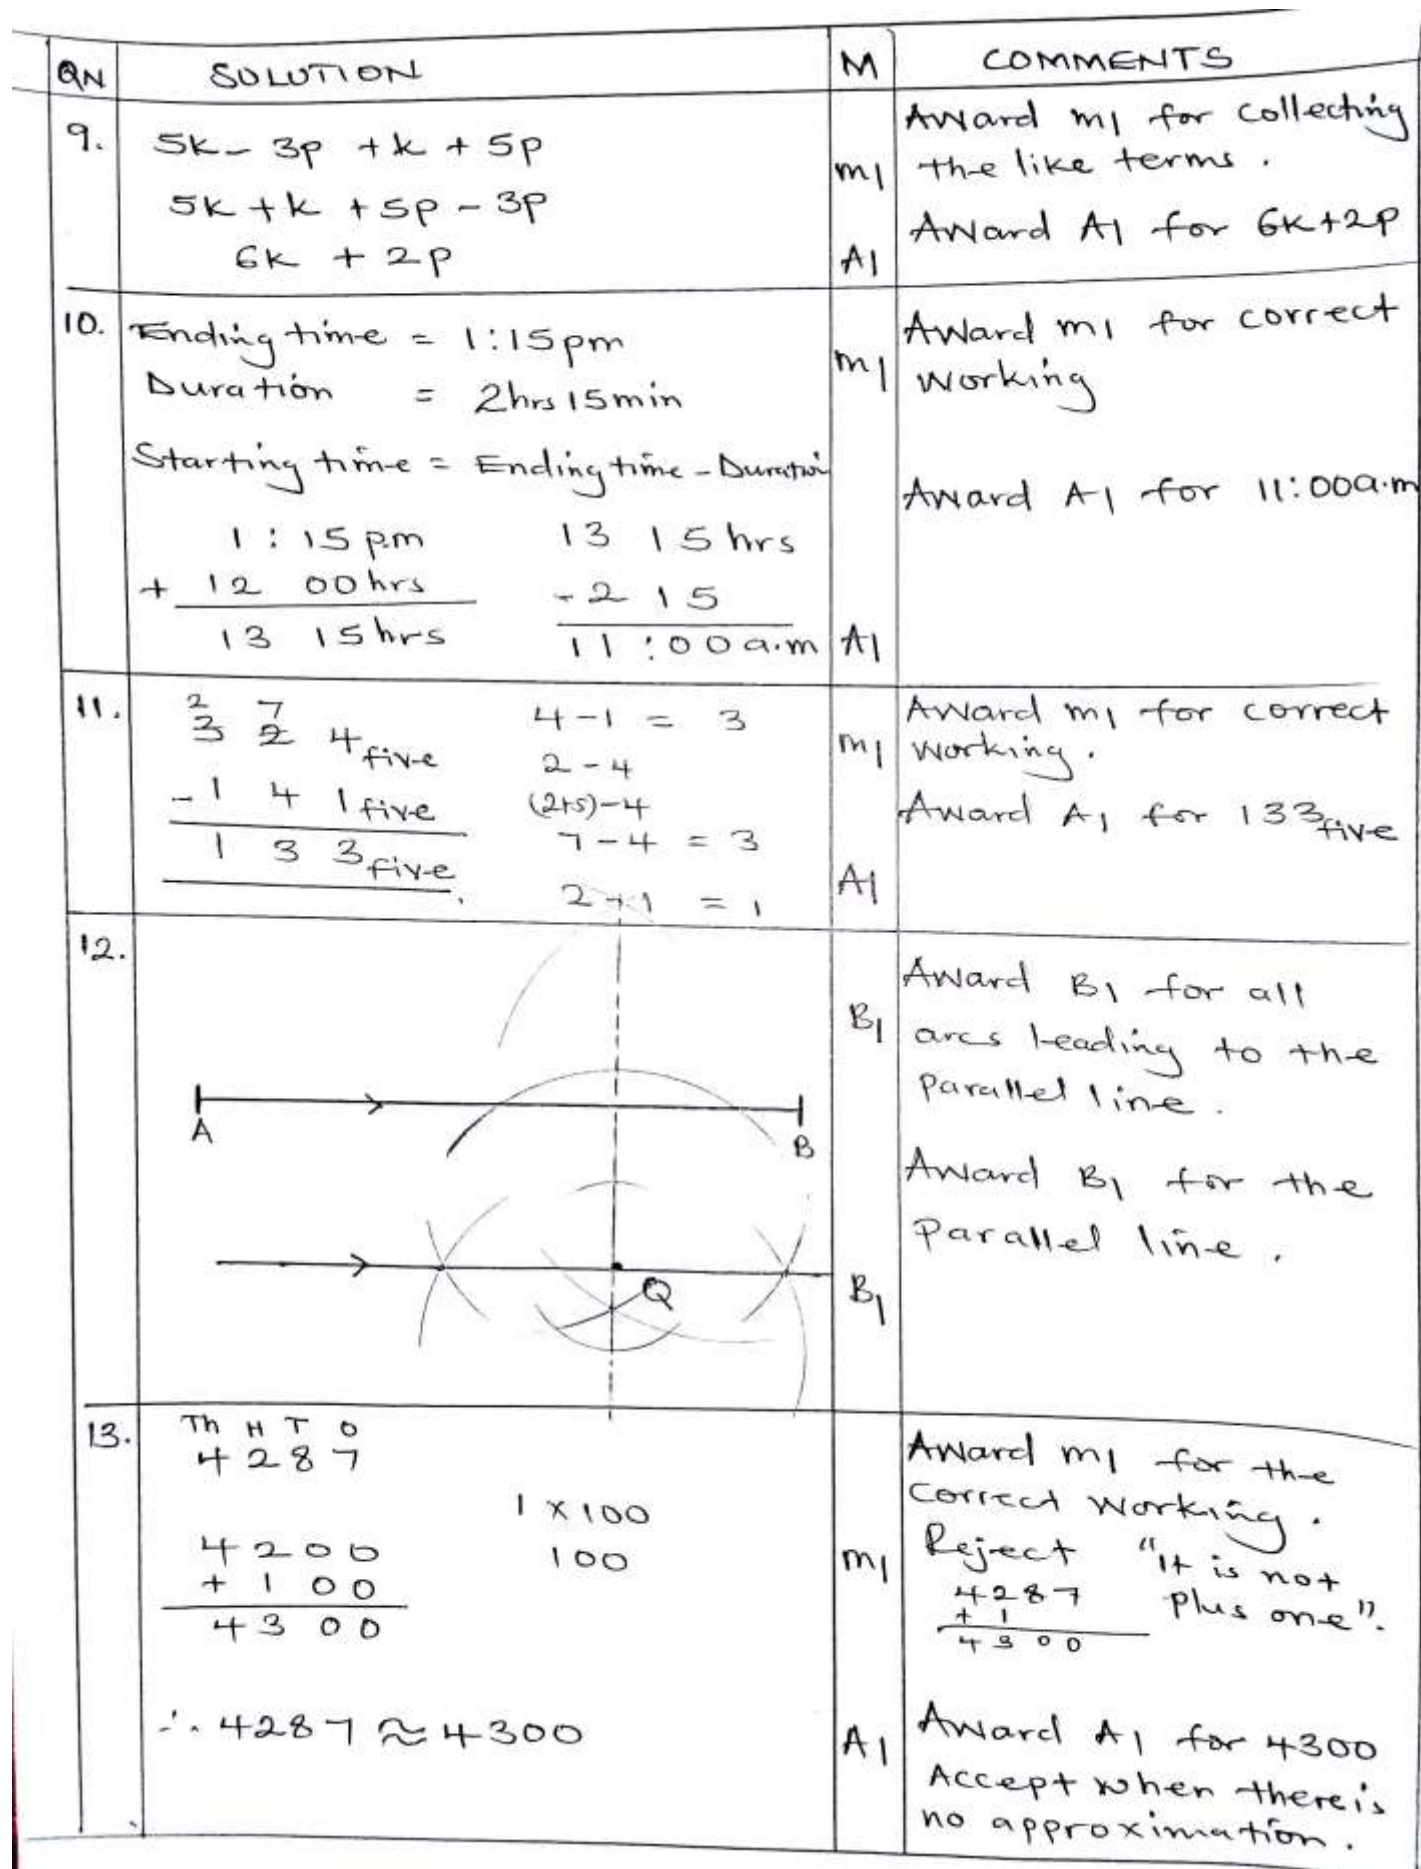 QN SOLUTION M COMMENTS
9. 5k - 3p + k + 5p
5k + k + 5p - 3p
6k + 2p
M1
A1
Award M1 for collecting
the like terms.
Award A1 for 6k+2p
10. Ending time = 1:15pm
Duration = 2hrs 15min
Starting time = Ending time - Duration
1 : 15 p.m
+ 12 00 hrs
13 15 hrs
13 15 hrs
- 2 15
11 : 00 a.m
M1
A1
Award M1 for correct
working
Award A1 for 11:00a.m
11. 2 7
3 2 4 five
- 1 4 1 five
1 3 3 five
4 - 1 = 3
2 - 4
(2+5)-4
7 - 4 = 3
2 - 1 = 1
M1
A1
Award M1 for correct
working.
Award A1 for 133 five
12.
A
B
Q
B1
B1
Award B1 for all
arcs leading to the
parallel line.
Award B1 for the
parallel line.
13. Th H T O
4 2 8 7
1 x 100
100
4 2 0 0
+ 1 0 0
4 3 0 0
∴ 4287 ≈ 4300
M1
A1
Award M1 for the
correct working.
Reject "It is not
plus one".
4287
+ 1
4300
Award A1 for 4300
Accept when there is
no approximation.